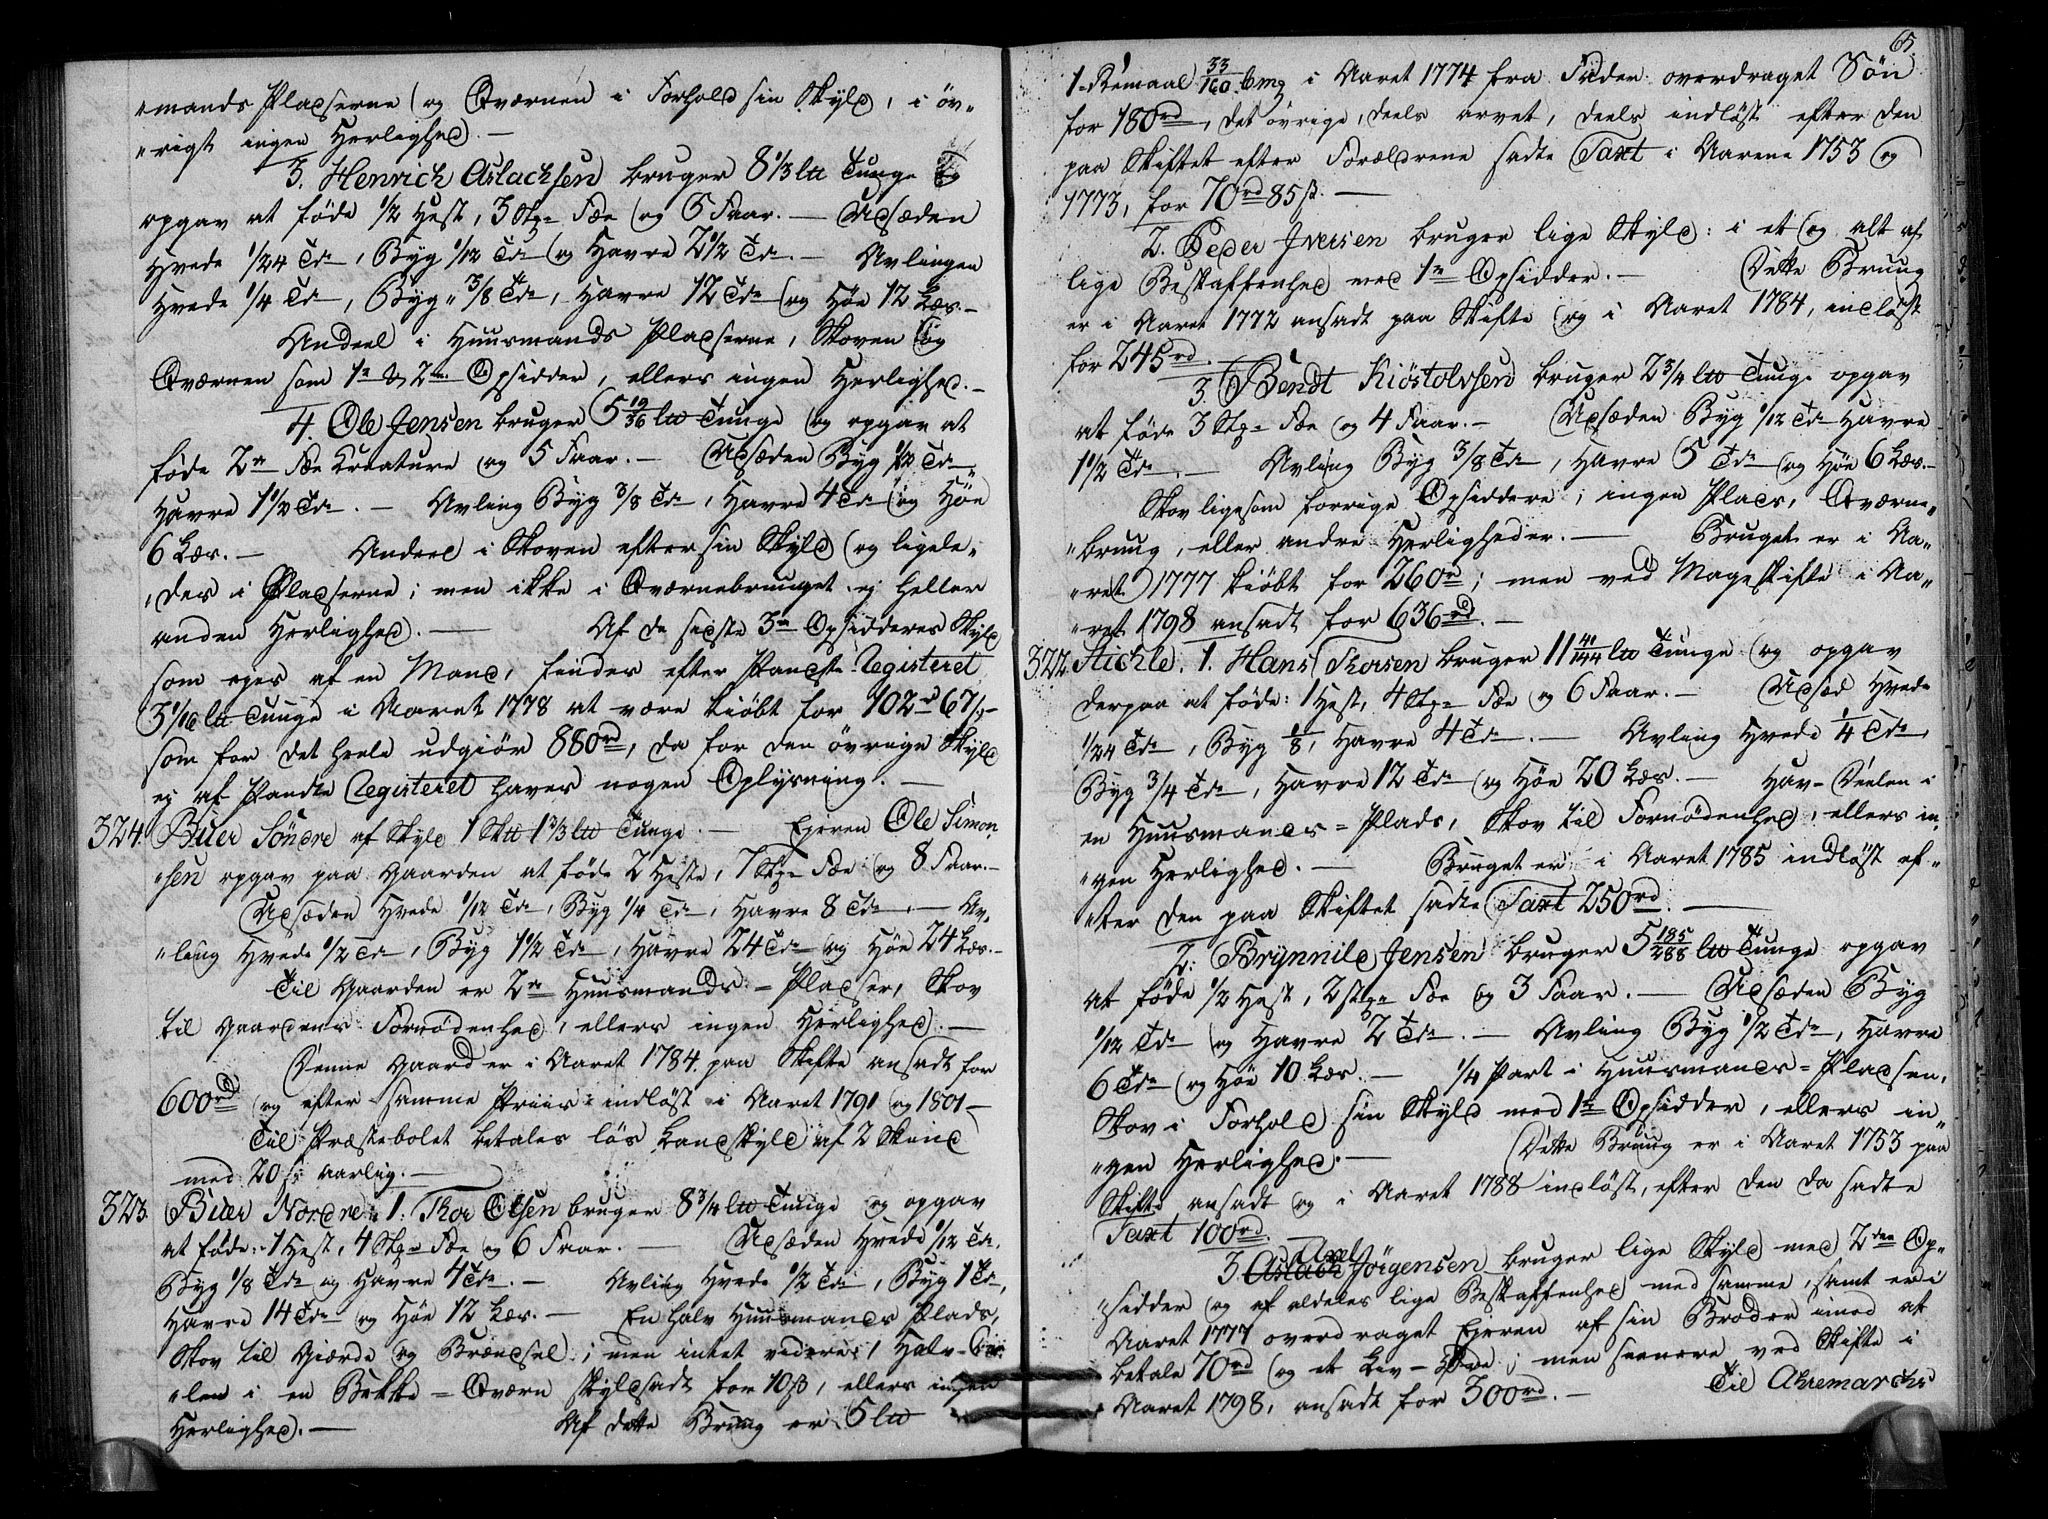 "mands Pladserne og Qværnen i Forhold sin Skyld, i öv-
"rigt ingen Herlighed. —
3. Henrich Aslachsen bruger 8 1/3 l℔ Tunge og
opgav at föde 1/2 Hest, 3 Stkr Fæe og 6 Faar. — Udsæden
Hvede 1/24 Tde, Byg 1/12 Tde og Havre 2 1/2 Tde. — Avlingen
Hvede 1/4 Tde, Byg 3/8 Tde, Havre 12 Tde og Höe 12 Læs. —
Andeel i Huusmands Pladserne, Skoven og
Qværnen som 1te & 2den Opsidder, ellers ingen Herlighed. —
4 Ole Jensen bruger 5 19/36 l℔ Tunge og opgav at
föde 2de Fæe Creature og 5 Faar. — Udsæden Byg 1/12 Tde
Havre 1 1/2 Tde. — Avling Byg 3/8 Tde, Havre 4 Tde og Höe
6 Læs. — Andeel i Skoven efter sin Skyld og ligele-
"des i Pladserne; men ikke i Qværnebruuget ej heller
anden Herlighed. — Af de sidste 3de Opsidderes Skyld
som ejes af en Mand, findes efter Pante Registeret
3 1/16 l℔ Tunge i Aaret 1778 at være kiöbt for 102 rd 67 s. —
som for det heele udgiör 880 rd, da for den övrige Skyld
ej af Pandte Registeret haves nogen Oplysning. —
324. Buer Söndre af Skyld 1 Sk℔ 1 2/3 l℔ Tunge. — Ejeren Ole Simon-
"sen opgav paa Gaarden at föde 2 Heste, 7 Stkr Fæe og 8 Faar. —
Udsæden Hvede 1/12 Tde, Byg 1/4 Tde, Havre 8 Tde. — Av-
"ling Hvede 1/2 Tde, Byg 1 1/2 Tde, Havre 24 Tde og Höe 24 Læs. —
Til Gaarden er 2de Huusmands-Pladser, Skov
til Gaardens Fornödenhed, ellers ingen Herlighed. —
Denne Gaard er i Aaret 1784. paa Skifte ansadt for
600 rd og efter samme Priis indlöst i Aaret 1791 og 1801 —
Til Præstebolet betales lös Landskyld af 2 Skind
med 20 s. aarlig. —
323. Buer Nordre. 1. Thor Olsen bruger 8 3/4 l℔ Tunge og opgav
at föde: 1 Hest, 4 Stkr Fæe og 6 Faar. — Udsæden Hvede 1/12 Tde,
Byg 1/8 Tde og Havre 4 Tde. — Avling Hvede 1/2 Tde, Byg 1 Tde,
Havre 14 Tde og Höe 12 Læs. — En halv Huusmands Plads,
Skov til Giærde og Brændsel; men intet videre; 1 Halv-
"len i en Bekke-Qværn skyldsadt for 10 ß, ellers ingen
Herlighed. — Af dette Bruug er 5 l℔
65.
1 Remaal 33/160 bmg i Aaret 1774 fra Fader overdraget Sön
for 180 rd, det övrige, deels arvet, deels indlöst efter den
paa Skiftet efter Forældrene sadte Taxt i Aarene 1753 og
1773, for 70 rd 85 ß. —
2. Peder Iversen bruger lige Skyld: i et og alt af
lige Beskaffenhed med 1te Opsidder. — Dette Bruug
er i Aaret 1772 ansadt paa Skifte og i Aaret 1784, indlöst
for 245 rd.
3. Bendt Kiöstolvsen bruger 2 3/4 l℔ Tunge opgav
at föde 3 Stkr Fæe og 4 Faar. — Udsæden Byg 1/12 Tde Havre
1 1/2 Tde. — Avling Byg 3/8 Tde, Havre 5 Tde og Höe 6 Læs. —
Skov ligesom forrige Opsiddere; ingen Plads, Qværne-
"bruug, eller andre Herligheder. — Bruget er i Aa-
"ret 1777 kiöbt for 260 rd; men ved Mageskifte i Aa-
"ret 1798 ansadt for 636 rd. —
322. Stichle. 1. Hans Thorsen bruger 11 41/144 l℔ Tunge og opgav
derpaa at föde: 1 Hest, 4 Stkr Fæe og 6 Faar. — Udsæd Hvede
1/24 Tde, Byg 1/8, Havre 4 Tde. — Avling Hvede 1/4 Tde,
Byg 3/4 Tde, Havre 12 Tde og Höe 20 Læs. — Halv-Deelen i
en Huusmands-Plads, Skov til Fornödenhed, ellers in-
"gen Herlighed. — Bruget er i Aaret 1785 indlöst ef-
"ter den paa Skiftet sadte Taxt 250 rd. —
2. Brynnild Jensen bruger 5 185/288 l℔ Tunge opgav
at föde 1/2 Hest, 2 Stkr Fæe og 3 Faar. — Udsæden Byg
1/12 Tde og Havre 2 Tde. — Avling Byg 1/2 Tde, Havre
6 Tde og Höe 10 Læs. — 1/4 Part i Huusmands-Pladsen,
Skov i Forhold sin Skyld med 1te Opsidder, ellers in-
"gen Herlighed. — Dette Bruug er i Aaret 1753 paa
Skifte ansadt og i Aaret 1788 indlöst, efter den da sadte
Taxt 100 rd.
3 Axel Jörgensen bruger lige Skyld med 2den Op-
"sidder og af aldeles lige Beskaffenhed med samme, samt er i
Aaret 1777 overdraget Ejeren af sin Broder imod at
betale 70 rd og et Liv-Öre; men seenere ved Skifte i
Aaret 1798, ansadt for 300 rd. — Til Ahremarchs